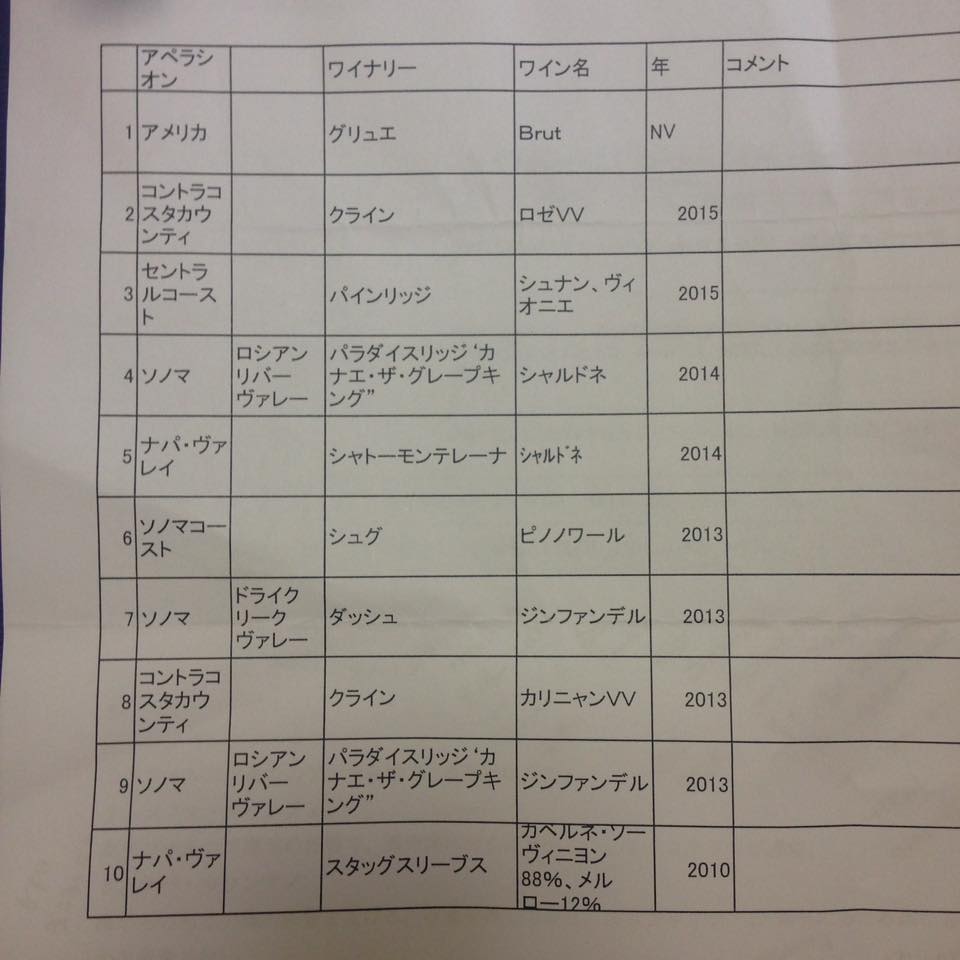 アペラシ
オン
ワイナリー
ワイン名
年
コメント
1
アメリカ
グリュエ
Brut
NV
2
コントラコ
スタカウ
ンティ
クライン
ロゼVV
2015
3
セントラ
ルコース
ト
パインリッジ
シュナン、ヴィ
オニエ
2015
4
ソノマ
ロシアン
リバー
ヴァレー
パラダイスリッジ‘カ
ナエ・ザ・グレープキ
ング”
シャルドネ
2014
5
ナパ・ヴァ
レイ
シャトーモンテレーナ
シャルドネ
2014
6
ソノマコー
スト
シュグ
ピノノワール
2013
7
ソノマ
ドライク
リーク
ヴァレー
ダッシュ
ジンファンデル
2013
8
コントラコ
スタカウ
ンティ
クライン
カリニャンVV
2013
9
ソノマ
ロシアン
リバー
ヴァレー
パラダイスリッジ‘カ
ナエ・ザ・グレープキ
ング”
ジンファンデル
2013
10
ナパ・ヴァ
レイ
スタッグスリーブス
カベルネ・ソー
ヴィニヨン
88%、メル
ロー12%
2010